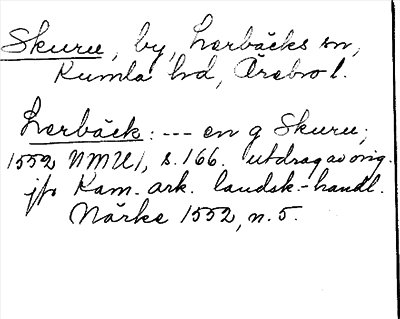 Skuru, by, Lerbäcks sn,
Kumla hd, Örebro l.
Lerbäck: --- en g Skuru;
1552 NMU1, s. 166. utdrag av orig.
jfr Kam. ark. landsk.-handl.
Närke 1552, n. 5.